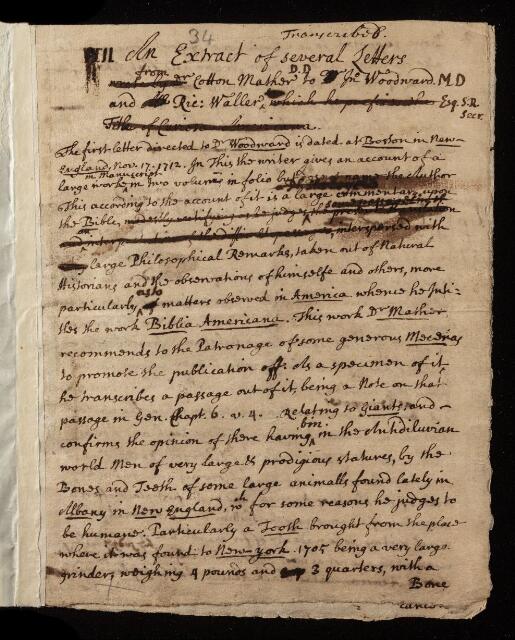 34
Transcribed.
III An Extract of several Letters
from Cotton Mather D.D to Dr Jno Woodward. M D
and Ric: Waller Esq. S.R Secr.
The first letter directed to Dr Woodward is dated. at Boston in New-
England, Nov. 17. 1712. In This the writer gives an account of a
large work in manuscript in two volumes in folio
This according to the account of it is a large commentary
the Bible, interspersed with
large Philosophical Remarks, taken out of Natural
Historians and the observations of himselfe and others, more
particularly as to matters observed in America whence he Inti-
tles the work Biblia Americana. This work Dr Mather
recommends to the Patronage of some generous Mecenas
to promote the publication off: As a specimen of it
he transcribes a passage out of it, being a Note on that
passage in Gen. Chapt. 6. v. 4. Relating to Giants. and
confirms the opinion of there having bin in the Antidiluvian
world Men of very large & prodigious statures, by the
Bones and Teeth of some large animalls found lately in
Albany in New England, wch for some reasons he judges to
be humane. Particularly a Tooth brought from the place
where it was found to New-york. 1705 being a very large
grinder, weighing 4 pounds and 3 quarters, with a
Bone